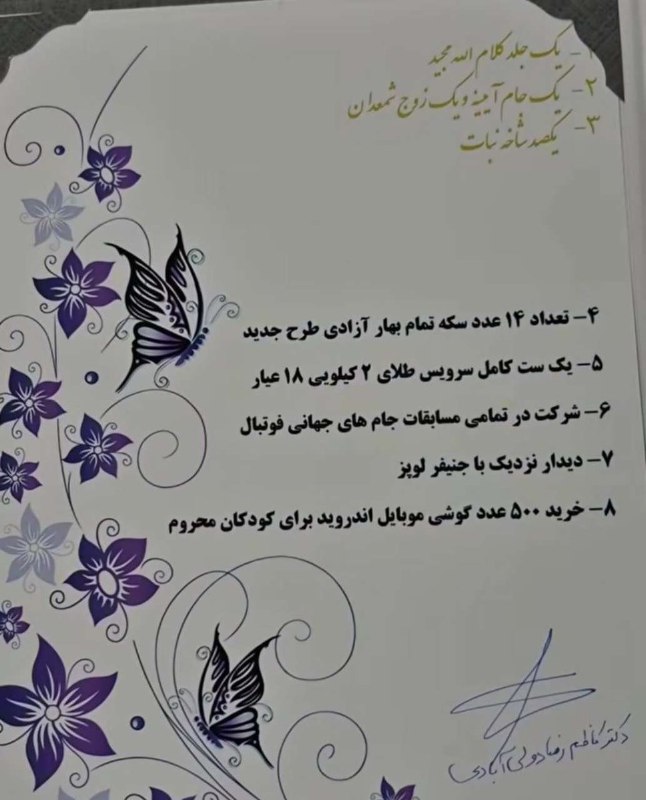 ۱- یک جلد کلام الله مجید
۲- یک جام آیینه و یک زوج شمعدان
۳- یکصد شاخه نبات
۴- تعداد ۱۴ عدد سکه تمام بهار آزادی طرح جدید
۵- یک ست کامل سرویس طلای ۲ کیلویی ۱۸ عیار
۶- شرکت در تمامی مسابقات جام های جهانی فوتبال
۷- دیدار نزدیک با جنیفر لوپز
۸- خرید ۵۰۰ عدد گوشی موبایل اندروید برای کودکان محروم
دکتر کاظم رضا دولی آبادی